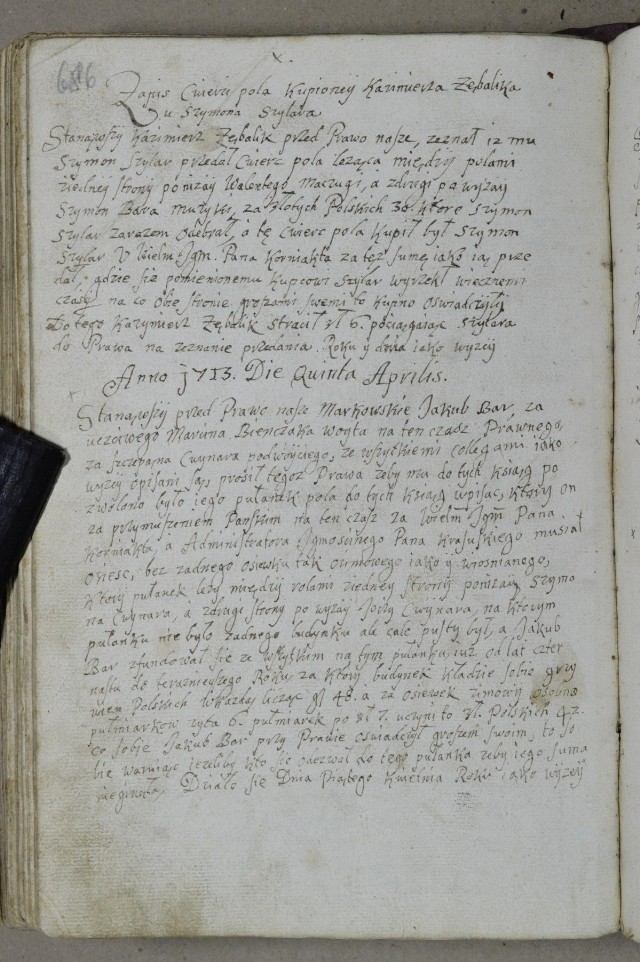 686
Zapis Cwierci pola Kupioney Kazimierza Zębalika
u Szymona Szylara
Stanąwszy Kazimierz Zębalik przed Prawo nasze, zeznał iz mu
Szymon Szylar przedał Cwierc pola lezącą między polami
ziedney strony ponizay Walentego Maczugi, a zdrugi powyzay
Szymon Bara muzyki, za złotych Polskich 30. ktore Szymon
Szylar zarazem odebrał, a tę Cwierc pola Kupił był Szymon
Szylar U Wielm: Jgm. Pana Korniakta za tęz sumę iako ią prze
dał, gdzie się pomienionemu Kupcowi Szylar wyrzekł wiecznemi
czasy na co obie stronie groszami swemi to kupno oswiadczyły
Do tego Kazymierz Zębalik stracił zł 6. pociągaiąc Szylara
do Prawa na zeznanie przedania. Roku y dnia iako wyzey
Anno 1713. Die Quinta Aprilis.
Stanąwszy przed Prawo nasze Markowskie Jakub Bar, za
uczciwego Marcina Bienczaka woyta na ten czasz Prawnego,
za Szczepana Cwynara podwoyciego, ze wszytkiemi collegami iako
wyzey opisani są, prosił tegoz Prawa zeby mu do tych ksiąg po
zwolono było iego pułanek pola do tych ksiąg wpisac, ktory on
za przymuszeniem Panskim na ten czasz za Wielm Jgm Pana
Korniakta, a Administratora Jgmoscinego Pana Krajuskiego musiał
osiesc, bez zadnego osiewku tak ozimowego iako y wiosnianego,
Ktory pułanek lezy między rolami ziedney strony ponizay Szymo
na Cwynara, a zdrugi strony po wyzay Jozy Cwynara, na ktorym
pułanku nie było zadnego budynku ale cale pusty był, a Jakub
Bar zfundował się ze wszytkim na tym pułanku iuz od lat czter
nastu do teraznieyszego Roku, za ktory budynek kładzie sobie grzy
wien Polskich licząc gł 48. a za osiewek zimowy osobno
pułmiarkow zyta 6. pułmiarek po zł 7. uczyni to zł. Polskich 42.
co sobie Jakub Bar przy Prawie oswiadczył groszem swoim, to so
bie waruiąc iezeliby kto się odezwał do tego pułanka zeby iego suma
nie gineła. Działo się Dnia Piątego Kwietnia Roku iako wyzey